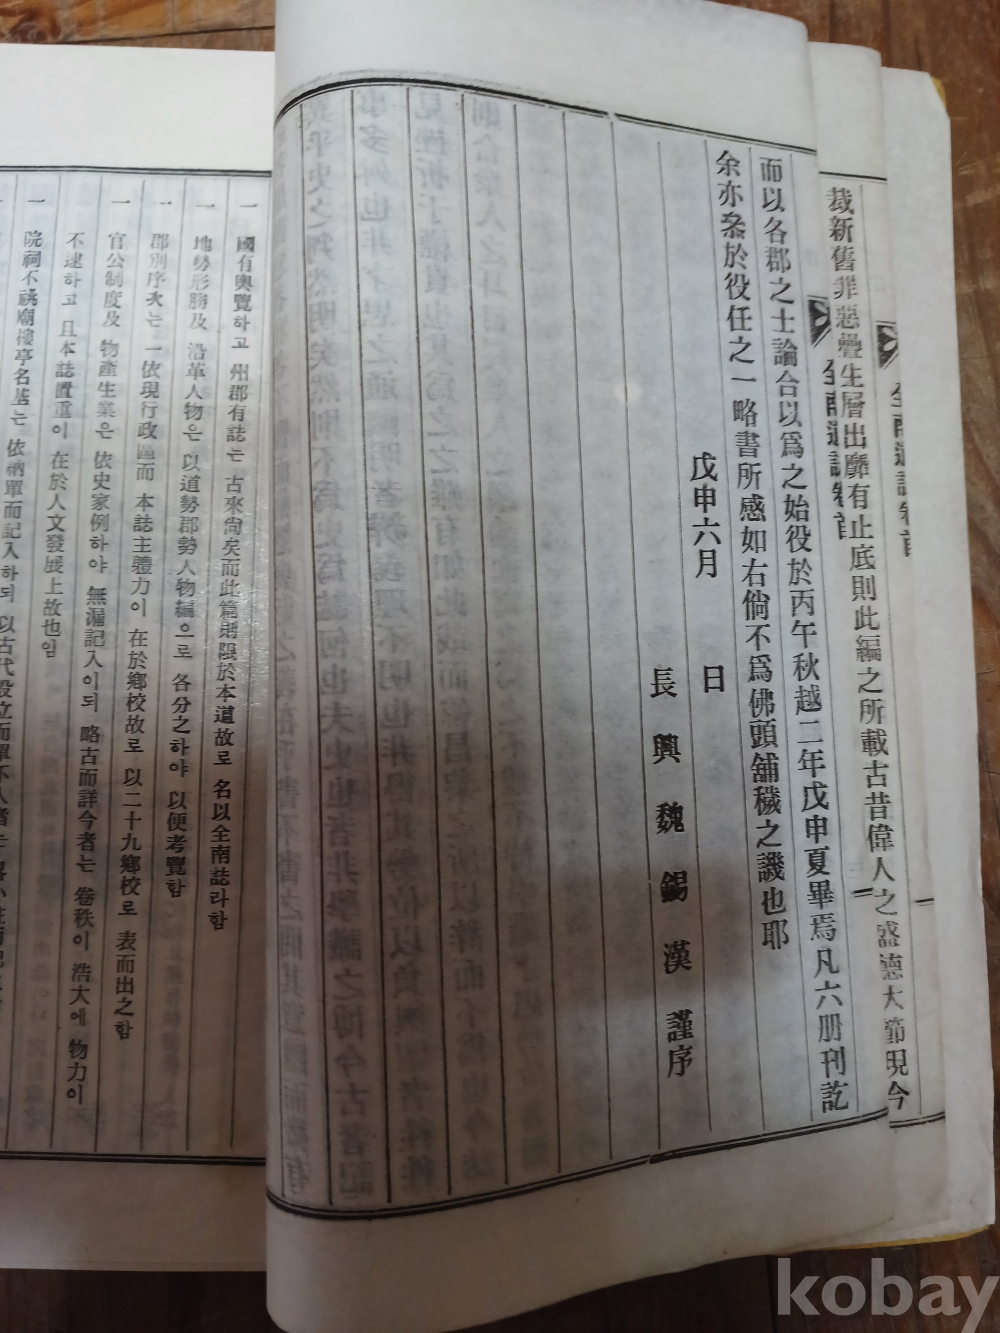 裁新舊非惡疊生層出靡有止底則此編之所載古昔偉人之盛德大節現今
全南道誌卷首
全南道誌卷首
而以各郡之士論合以爲之始役於丙午秋越二年戊申夏畢焉凡六册刊訖
余亦叅於役任之一略書所感如右倘不爲佛頭舖穢之譏也耶
戊申六月 日
長興魏錫漢謹序
一 國有輿覽하고 州郡有誌는 古來尙矣而此篇則限於本道故로 名以全南誌라함
一 地勢形勝及 沿革人物은 以道勢郡勢人物編으로 各分之하야 以便考覽함
一 郡別序次는 一依現行政區而 本誌主體力이 在於鄕校故로 以二十九鄕校로 表而出之함
一 官公制度及 物產生業은 依史家例하야 無漏記入이되 略古而詳今者는 卷秩이 浩大에 物力이
不逮하고 且本誌置重이 在於人文發展上故也임
一 院祠不祧廟樓亭名基는 依納單而記入하되 以古代設立而單不入者는
kobay